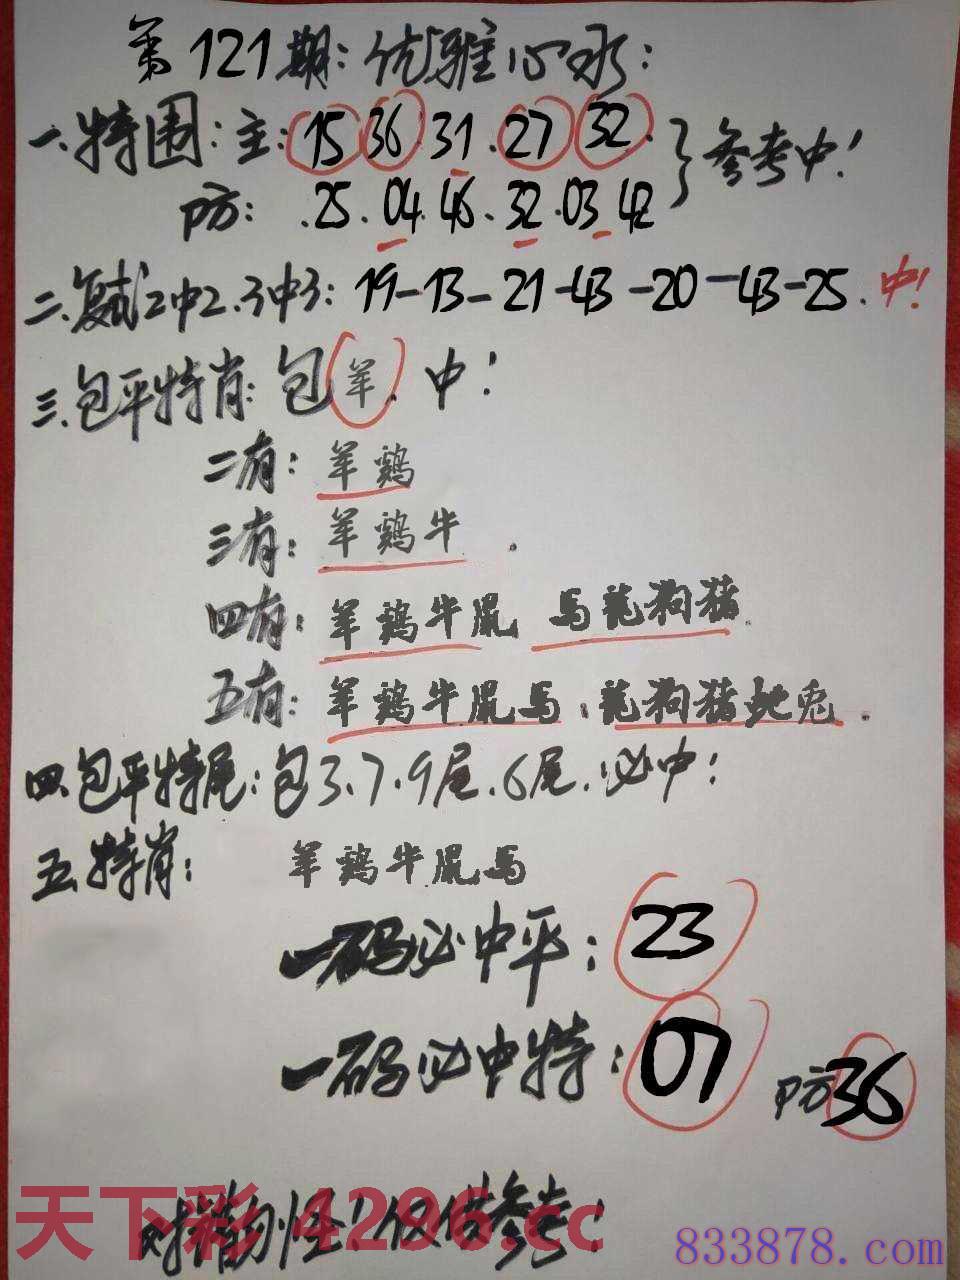 第121期:优雅心水:
一.特围:主:15 36 31.27 32.
防: .25.04.46.32.03 42
}参考中!
二.复式2中2.3中3:19-13-21-43-20-43-25.中!
三.包平特肖:包羊.中!
二有:羊鸡
三有:羊鸡牛.
四有:羊鸡牛鼠 馬龍狗猪.
五有:羊鸡牛鼠馬:龍狗猪蛇兎.
四.包平特尾:包3.7.9尾.6尾.必中!
五.特肖: 羊鸡牛鼠馬
一码必中平:23
一码必中特:07 防36
天下彩 4296.cc
!仅供参考!
833878.com